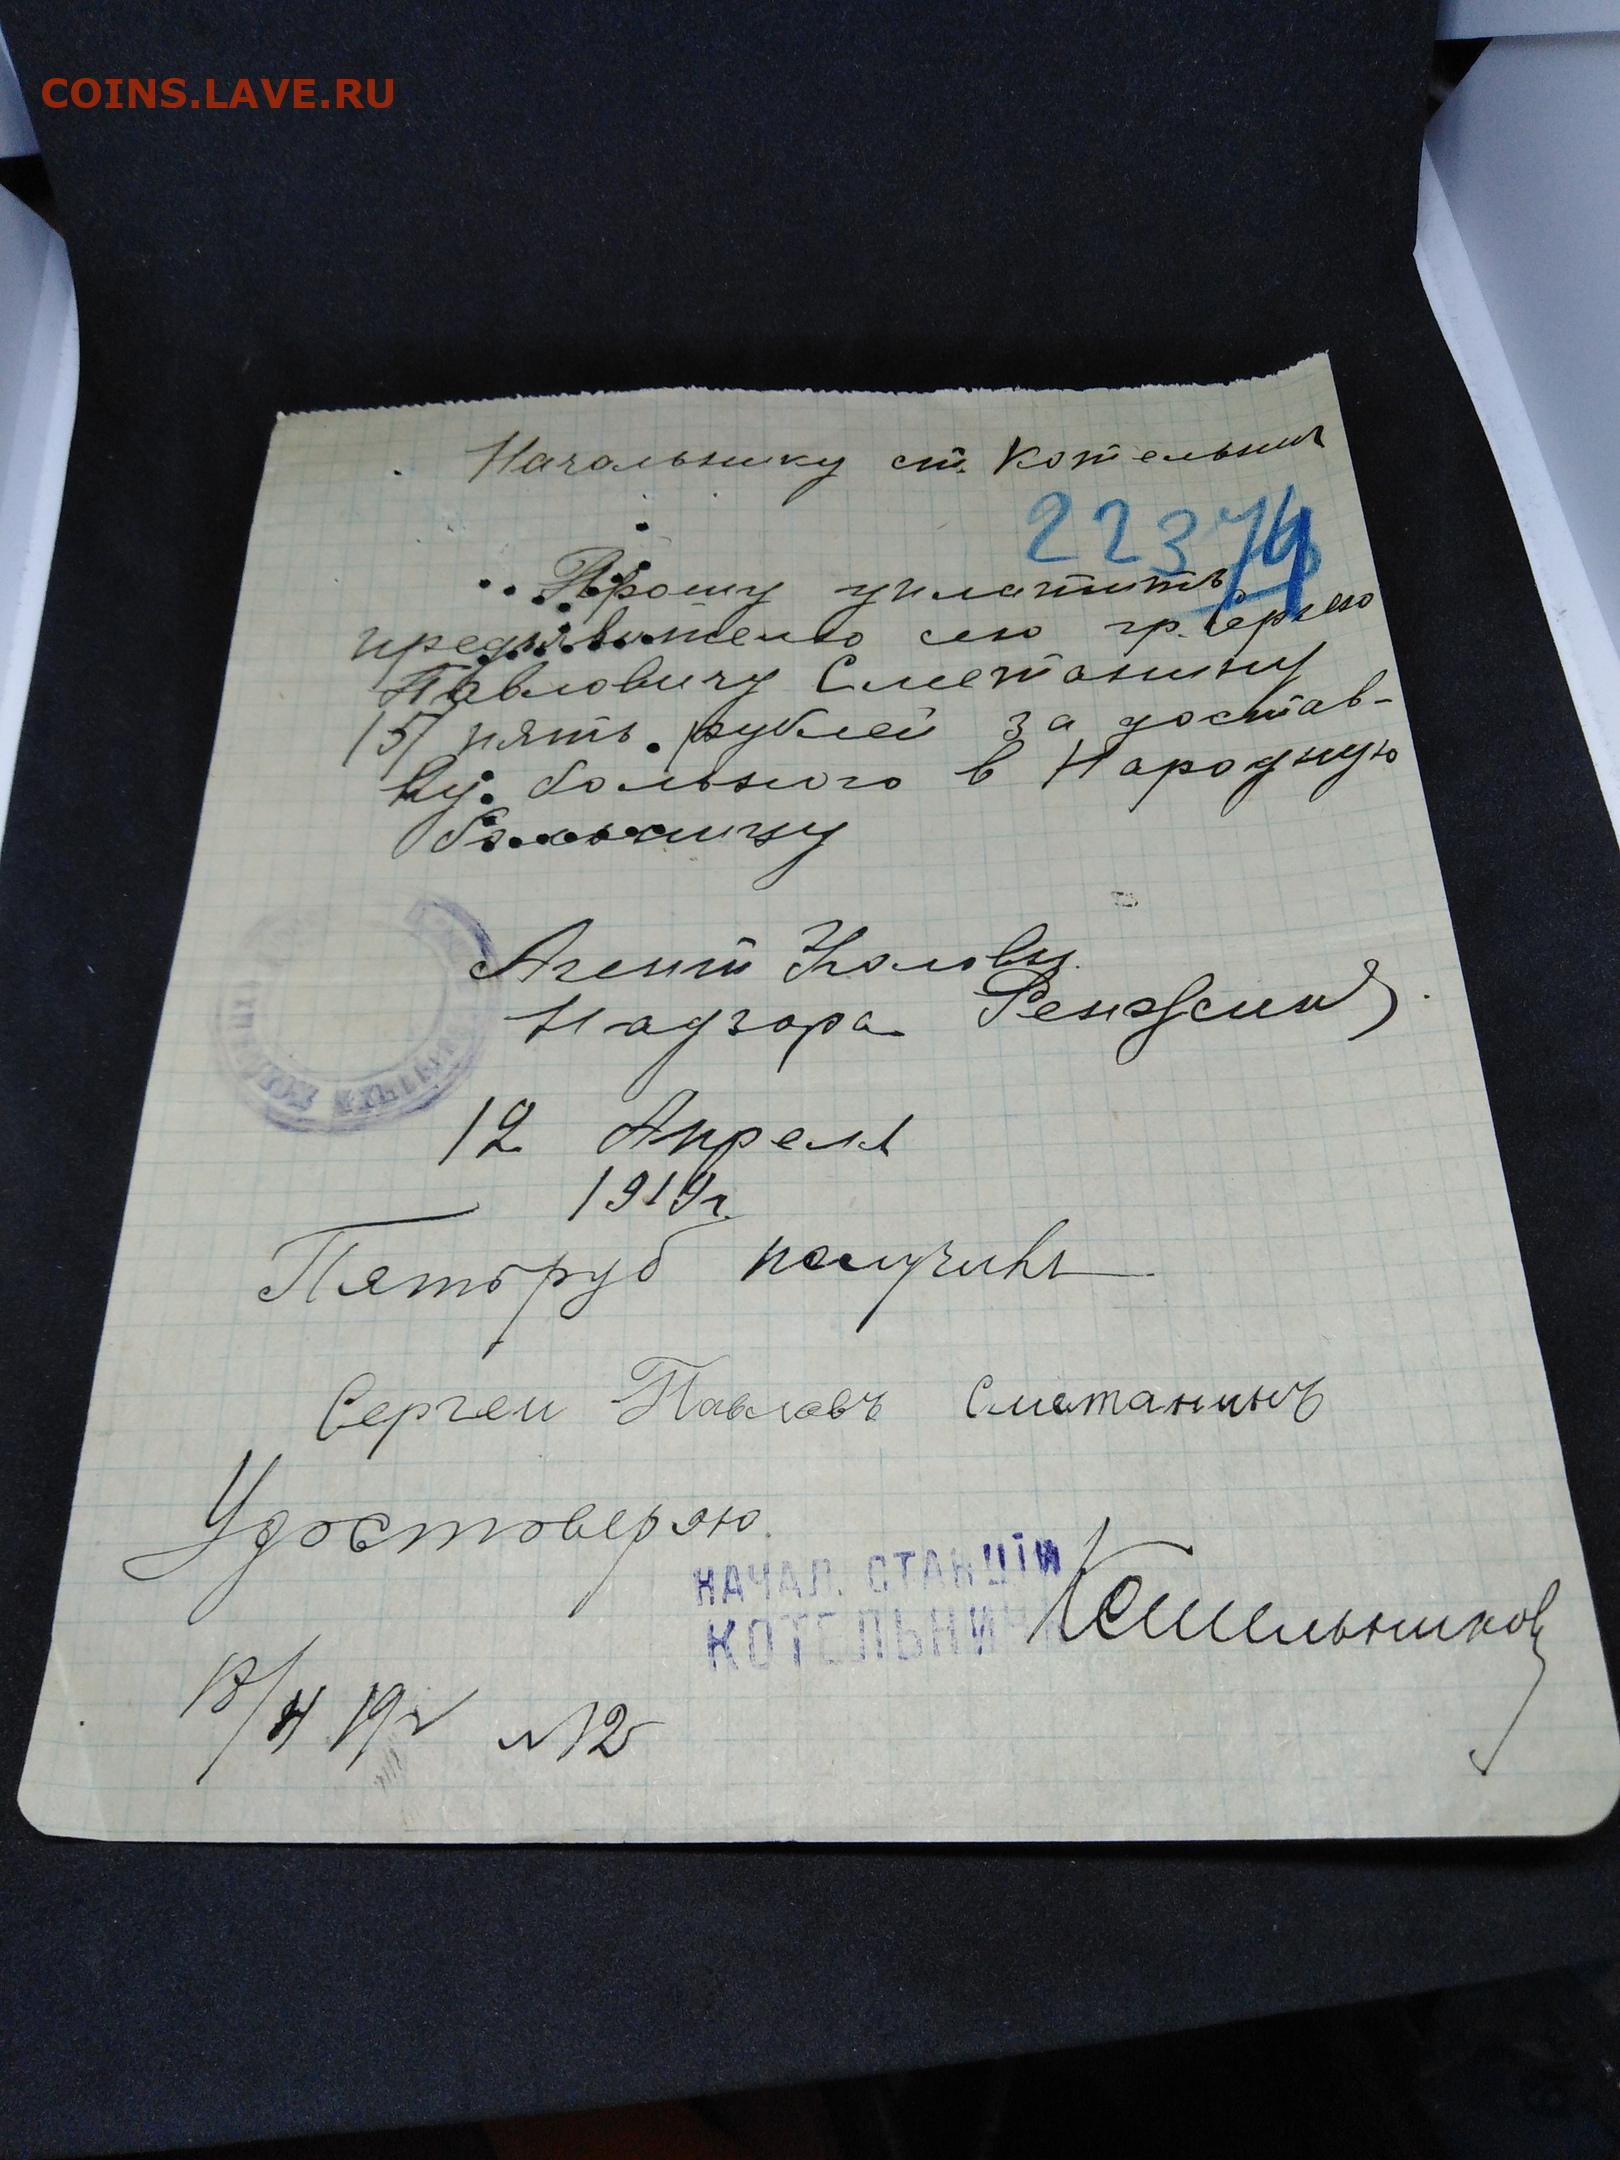 COINS.LAVE.RU
Начальнику ст. Котельнич
Прошу уплатить
предъявителю сего гр. Сергею
Павловичу Сметанину
/5/ пять рублей за достав-
ку больного в Народную
больницу
Агент
Надзора
12 Апреля
1919 г.
Пять руб получилъ
Сергеи Павловъ Сметанинъ
Удостоверяю
НАЧАЛ. СТАНЦІИ
КОТЕЛЬНИЧЪ
19г №12